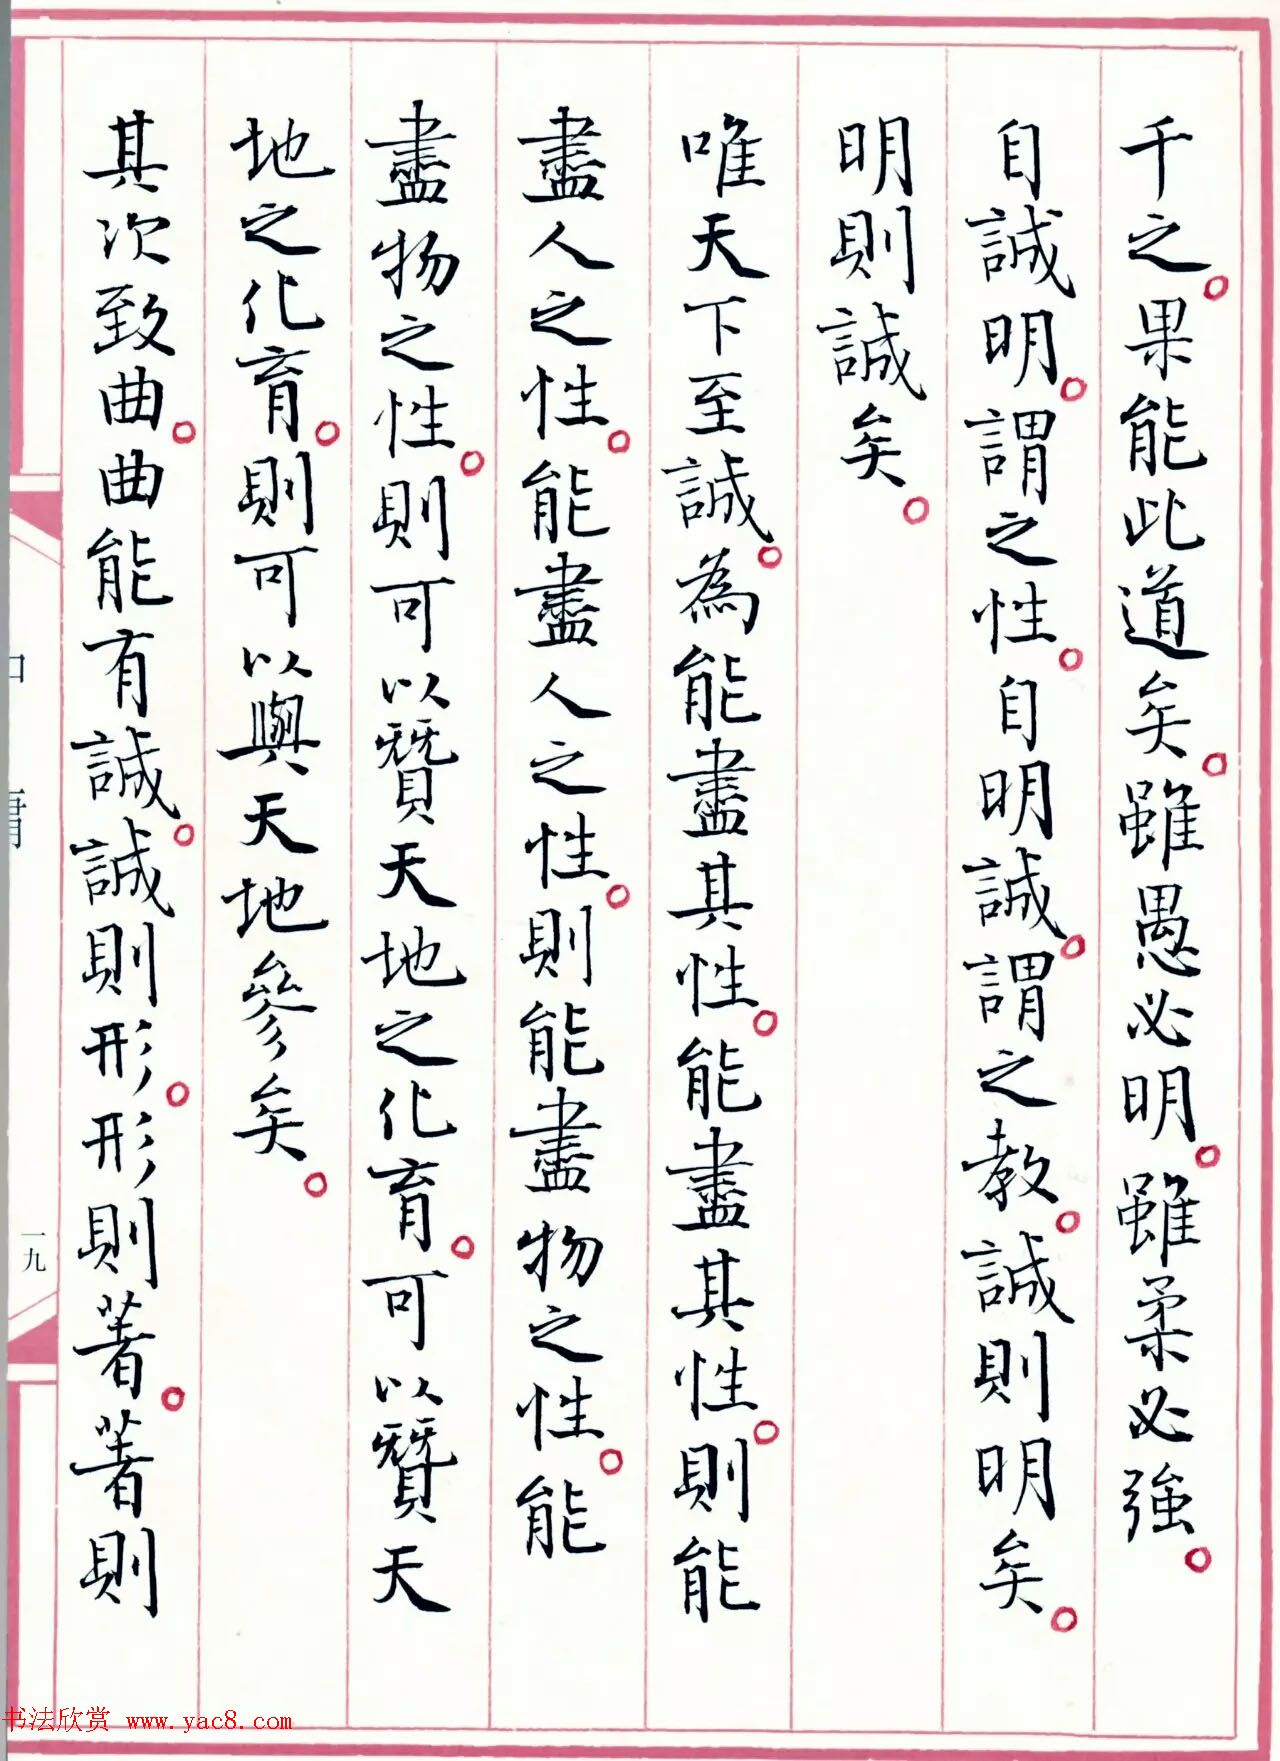 千之。果能此道矣。雖愚必明。雖柔必強。
自誠明。謂之性。自明誠。謂之教。誠則明矣。
明則誠矣。
唯天下至誠。為能盡其性。能盡其性。則能
盡人之性。能盡人之性。則能盡物之性。能
盡物之性。則可以贊天地之化育。可以贊天
地之化育。則可以與天地參矣。
其次致曲。曲能有誠。誠則形。形則著。著則
中庸
一九
书法欣赏 www.yac8.com